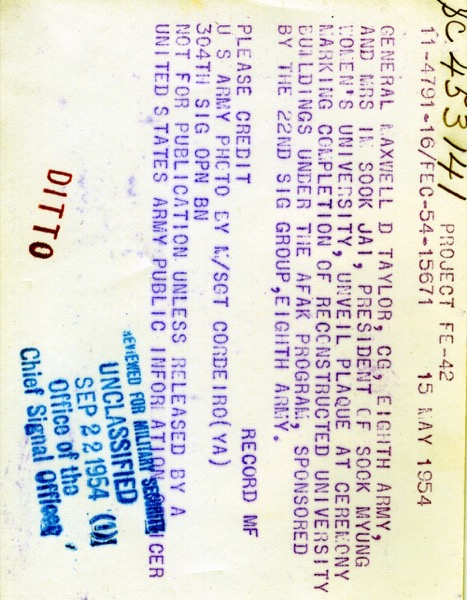 SC 453141
PROJECT FE-42
11-4791-16/FEC-54-15671 15 MAY 1954
GENERAL MAXWELL D TAYLOR, CG, EIGHTH ARMY,
AND MRS IN SOOK JAI, PRESIDENT OF SOOK MYUNG
WOMEN'S UNIVERSITY, UNVEIL PLAQUE AT CEREMONY
MARKING COMPLETION OF RECONSTRUCTED UNIVERSITY
BUILDINGS UNDER THE AFAK PROGRAM, SPONSORED
BY THE 22ND SIG GROUP, EIGHTH ARMY.
RECORD MF
PLEASE CREDIT
U S ARMY PHOTO BY M/SGT CORDEIRO(YA)
304TH SIG OPN BN
NOT FOR PUBLICATION UNLESS RELEASED BY A
UNITED STATES ARMY PUBLIC INFORMATION OFFICER
DITTO
REVIEWED FOR MILITARY SECURITY
UNCLASSIFIED
SEP 22 1954
Office of the
Chief Signal Officer